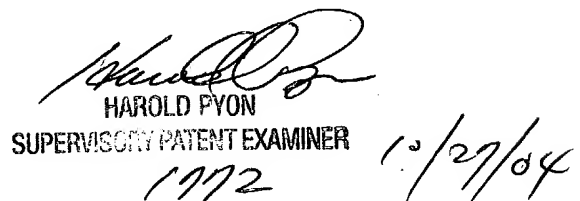 HAROLD PYON
SUPERVISORY PATENT EXAMINER
10/27/04
1772